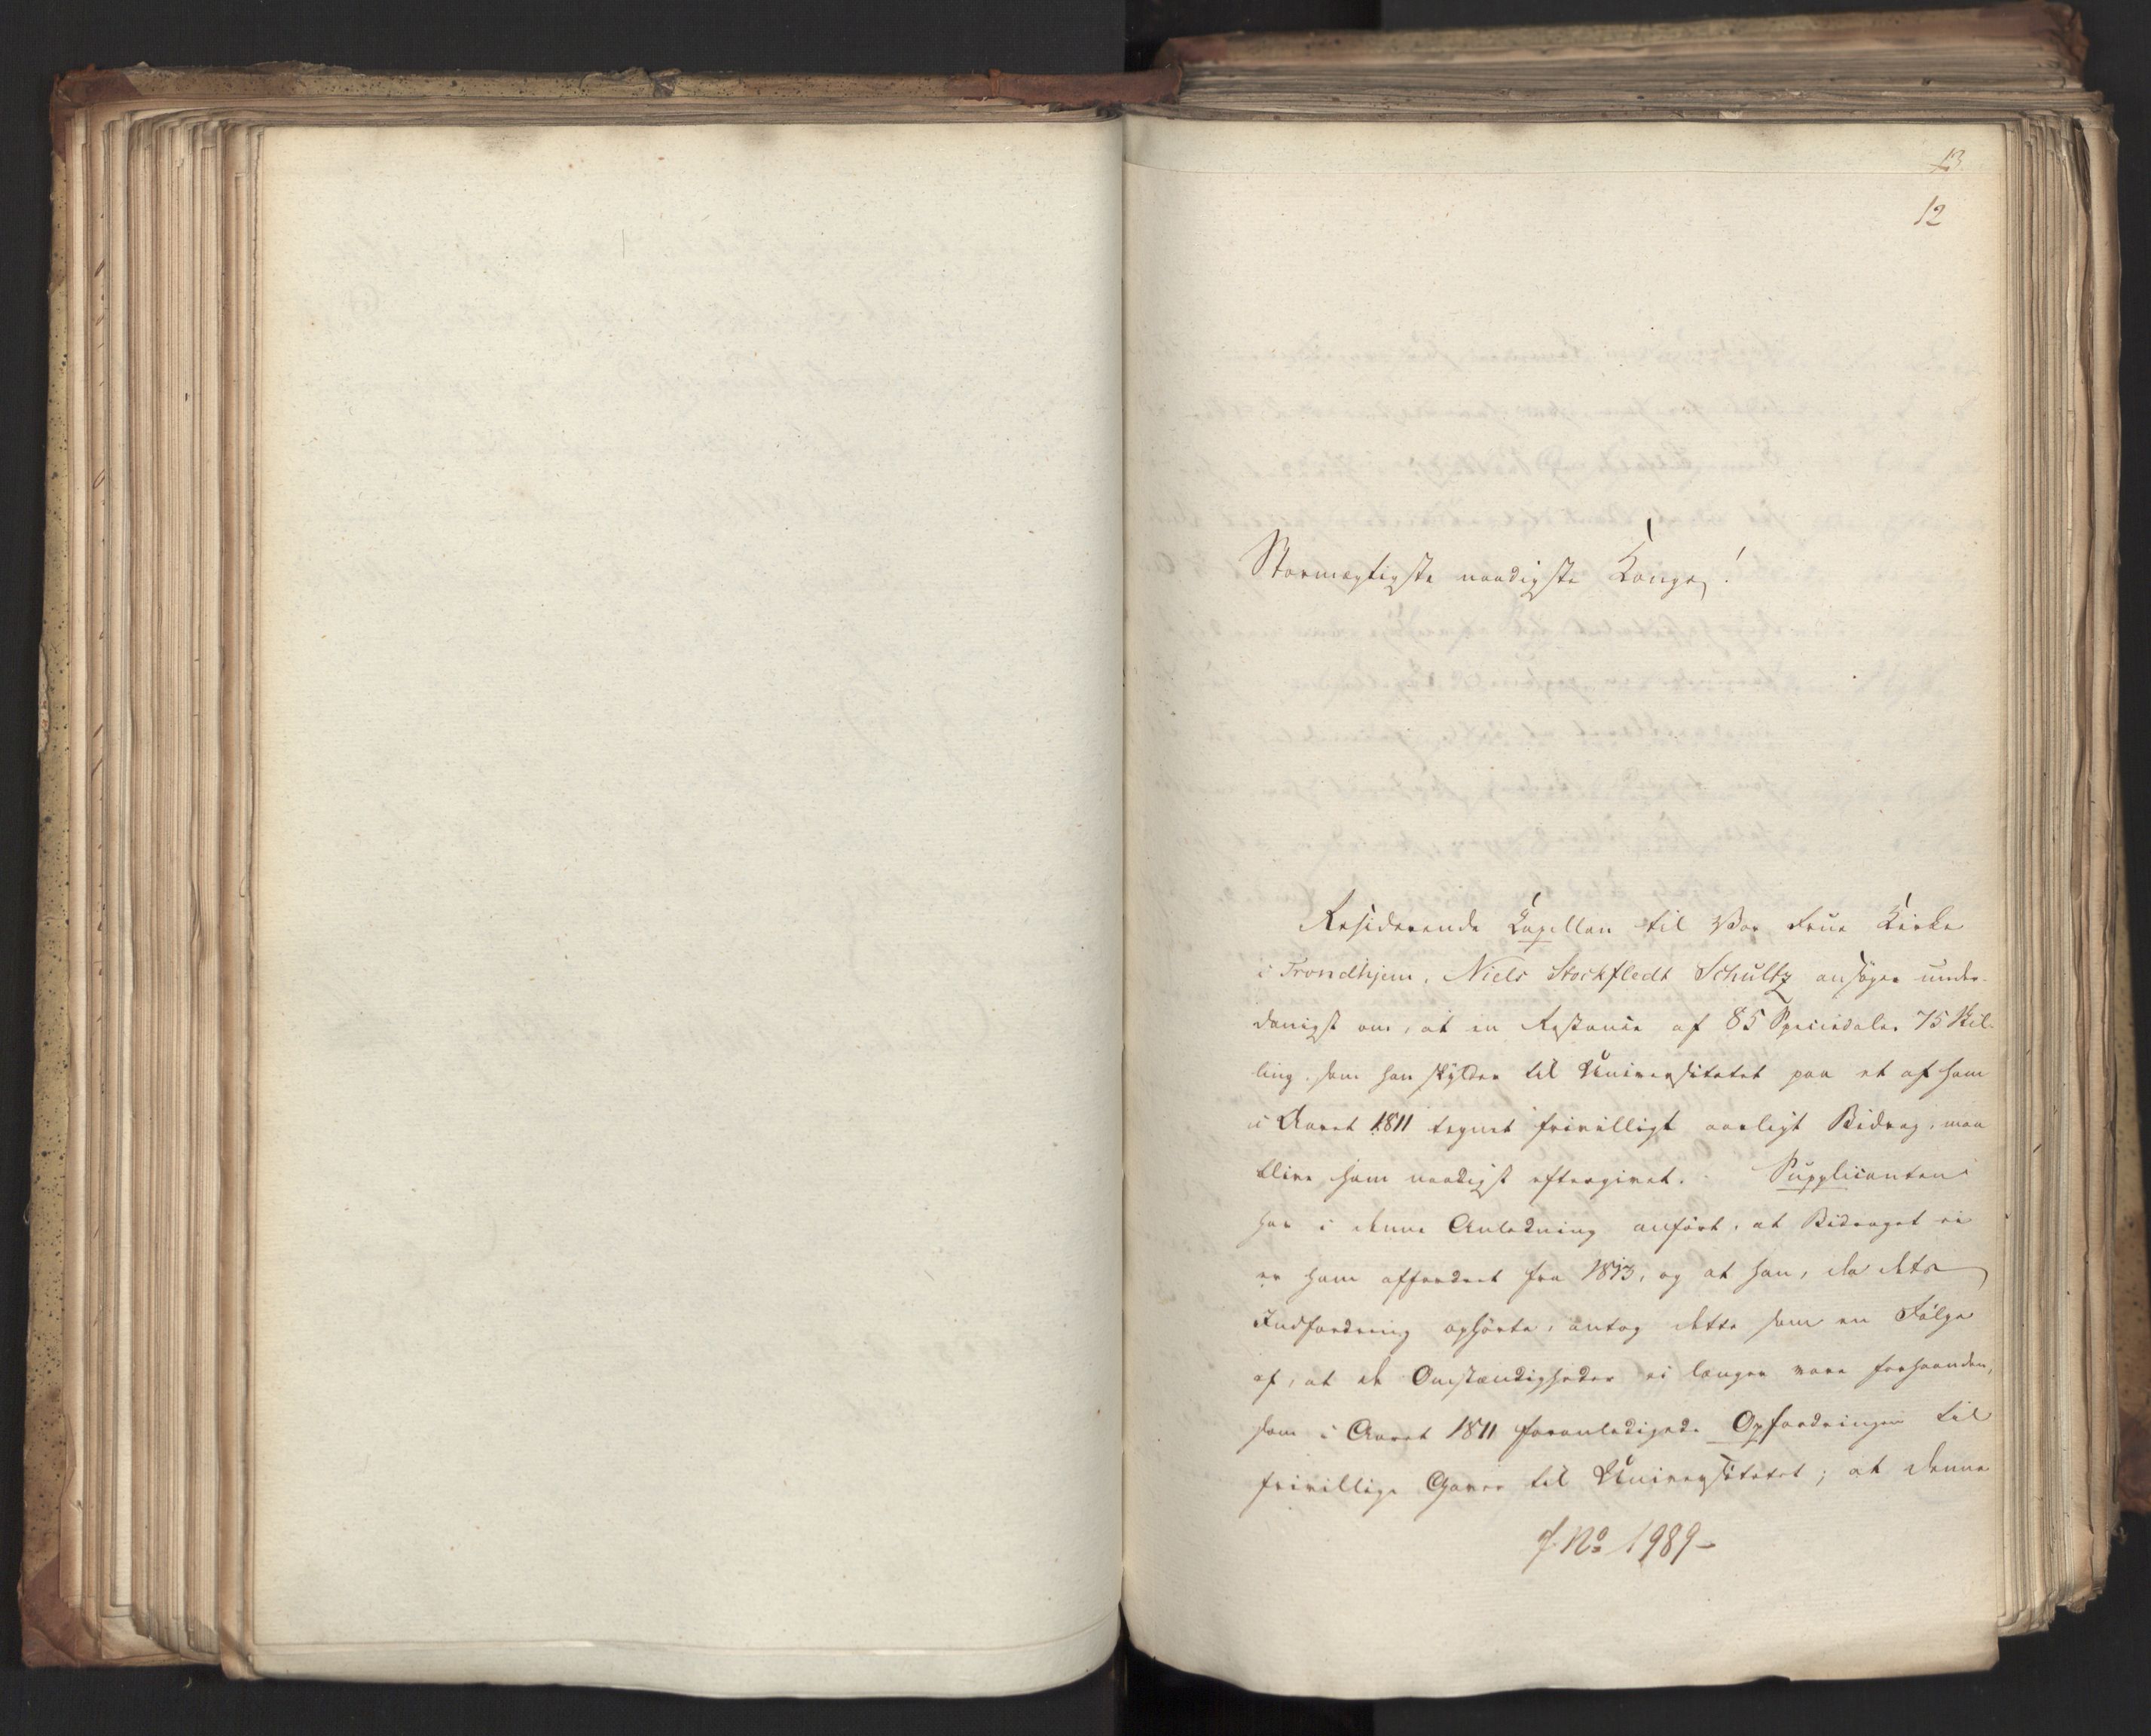 13.
12
Stormægtigste naadigste Konge!
Residerende Capellan til Vor Frue Kirke
i Trondhjem, Niels Stockfledt Schultz ansøger under-
danigst om, at en Restance af 85 Speciedaler 75 Skil-
ling, som han skylder til Universitetet paa et af ham
i Aaret 1811 tegnet frivilligt aarligt Bidrag, maa
blive ham naadigst eftergivet. Supplicanten
har i denne Anledning anført, at Bidraget ei
er ham affordret fra 1813, og at han, da dets
Indfordring ophørte, antog dette som en Følge
af, at de Omstændigheder ei længer vare forhaanden,
som i Aaret 1811 foranledigede Opfordringen til
frivillige Gaver til Universitetet; at denne
J. No 1989-